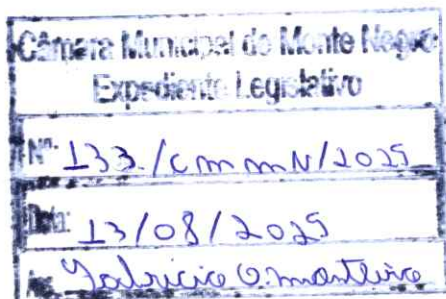 Câmara Municipal de Monte Negro
Expediente Legislativo
Nº: 133./CMMN/2025
Data: 13/08/2025
Ass. Fabricio O. monteiro